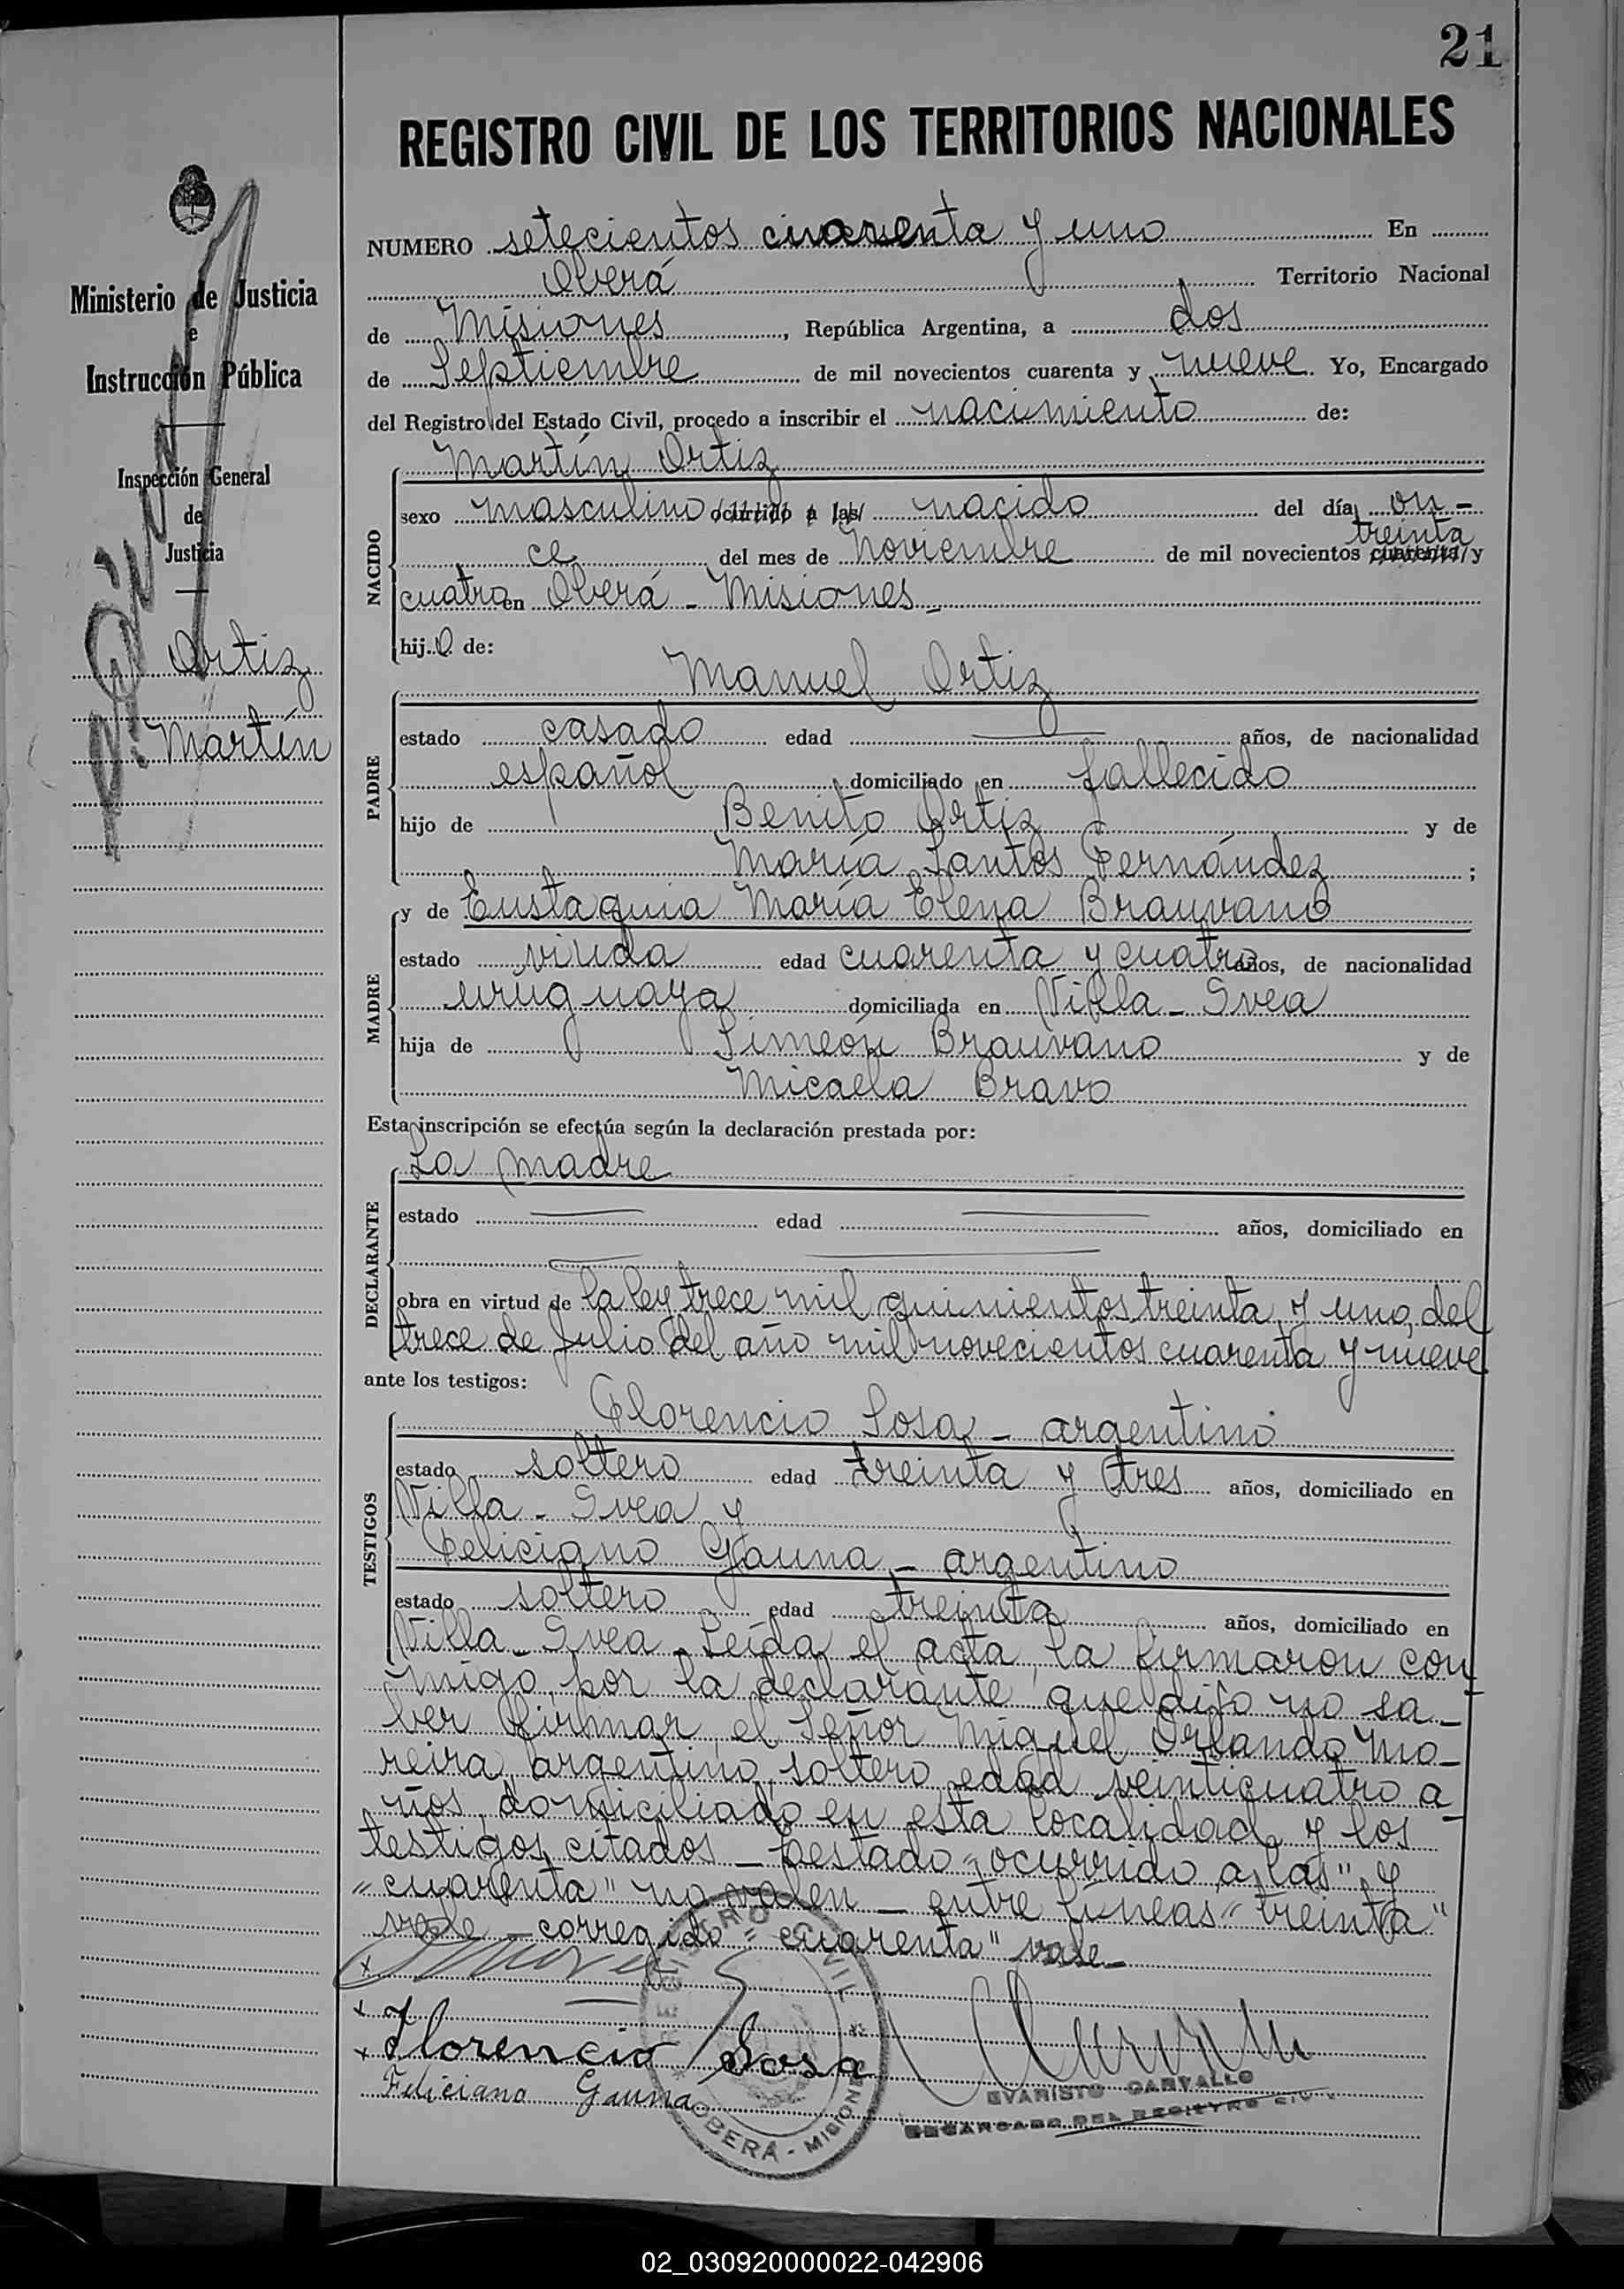 21
REGISTRO CIVIL DE LOS TERRITORIOS NACIONALES
Ministerio de Justicia
e
Instrucción Pública
Inspección General
de
Justicia
Ortiz
Martín
NUMERO setecientos cuarenta y uno En
Oberá Territorio Nacional
de Misiones, República Argentina, a dos
de Septiembre de mil novecientos cuarenta y nueve. Yo, Encargado
del Registro del Estado Civil, procedo a inscribir el nacimiento de:
Martín Ortiz
NACIDO
sexo masculino ocurrido a las nacido del día on-
treinta
ce del mes de Noviembre de mil novecientos cuarenta y
cuatro en Oberá - Misiones -
hijo de:
Manuel Ortiz
PADRE
estado casado edad años, de nacionalidad
español domiciliado en fallecido
hijo de Benito Ortiz y de
María Santos Fernández ;
y de Eustaquia María Elena Brauvano
MADRE
estado viuda edad cuarenta y cuatro años, de nacionalidad
uruguaya domiciliada en Villa - Svea
hija de Simeón Brauvano y de
Micaela Bravo
Esta inscripción se efectúa según la declaración prestada por:
La madre
DECLARANTE
estado edad años, domiciliado en
obra en virtud de la ley trece mil quinientos treinta y uno, del
trece de Julio del año mil novecientos cuarenta y nueve
ante los testigos:
Florencio Sosa - argentino
TESTIGOS
estado soltero edad treinta y tres años, domiciliado en
Villa - Svea y
Feliciano Gauna - argentino
estado soltero edad treinta años, domiciliado en
Villa - Svea - Leída el acta, la firmaron con
migo, por la declarante que dijo no sa-
ber firmar, el Señor Miguel Orlando Mo-
reira, argentino, soltero, edad veinticuatro a-
ños, domiciliado en esta localidad y los
testigos citados - Testado "ocurrido a las" y
"cuarenta" no valen - entre líneas "treinta"
vale - corregido "cuarenta" vale -
x
x
x Florencio Sosa
Feliciano Gauna
REGISTRO CIVIL
OBERÁ - MISIONES
EVARISTO CARVALLO
ENCARGADO DEL REGISTRO CIVIL
02_030920000022-042906